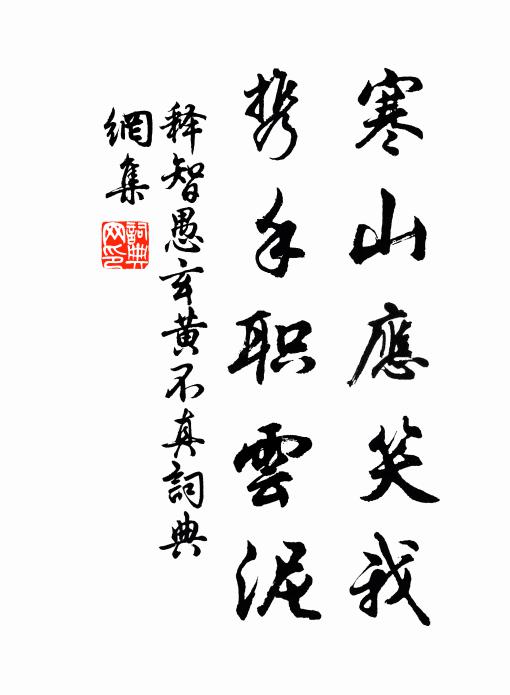 寒山應笑我
携手职雲泥
释智愚玄黄不真詞典
網集
詞典
网印